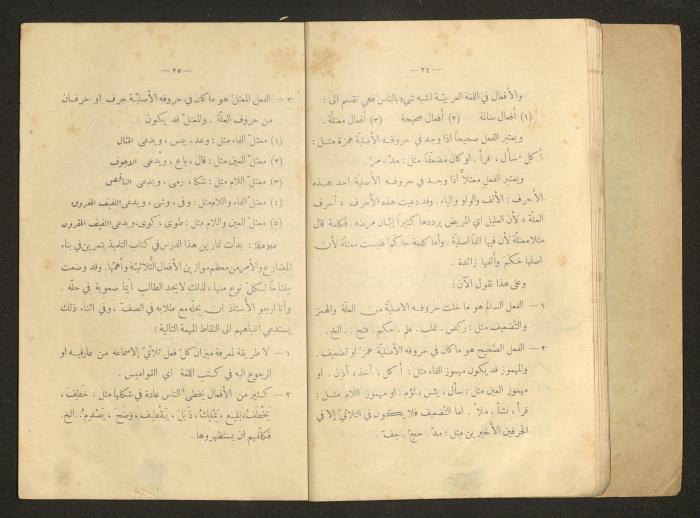 — ٢٤ —
والأفعال في اللغة العربيّة اشبه شيء بالناس فهي تقسم الى :
(١) أفعال سالمة (٢) أفعال صحيحة (٣) أفعال معتلّة .
ويعتبر الفعل صحيحاً اذا وجد في حروفه الأصليّة همزة مثل :
أكل ، سأل ، قرأ . او كان مضعّفاً مثل : مدّ ، عزّ .
ويعتبر الفعل معتلاً اذا وجد في حروفه الأصلية احد هذه
الأحرف : الألف والواو والياء . وقد دعيت هذه الأحرف « أحرف
العلّة » لأن العليل اي المريض يرددها كثيراً إبّان مرضه . فكلمة قال
مثلا معتلّة لأن فيها الفا اصليّة . وأما كلمة حاكم فليست معتلّة لأن
اصلها حكم وألفها زائدة .
وعلى هذا نقول الآن :
١ — الفعل السالم هو ما خلت حروفه الاصليّة من العلّة والهمز
والتضعيف مثل : ركض . غلب . علم . حكم . فتح . . الخ .
٢ — الفعل الصّحيح هو ما كان في حروفه الأصليّة همزٌ او تضعيف .
والمهموز قد يكون مهموز الفاء مثل : أكل ، أخذ ، أذن . او
مهموز العين مثل : سأل ، يئس ، لؤم . او مهموز اللام مثل :
قرأ ، نشأ ، ملأ . اما التضعيف فلا يكون في الثلاثيّ إلا في
الحرفين الأخيرين مثل : مدّ . حجّ . جفّ .
— ٢٥ —
٣ — الفعل المعتلّ هو ما كان في حروفه الأصليّة حرف او حرفان
من حروف العلّة . والمعتلّ قد يكون :
(١) معتلّ الفاء مثل : وعد ، يبس ، ويدعى المثال
(٢) معتلّ العين مثل : قال ، باع ، ويدعى الاجوف
(٣) معتلّ اللام مثل : شكا ، رمى ، ويدعى الناقص
(٤) معتلّ الفاء واللام مثل : وفى ، وشى ، ويدعى اللفيف المفروق
(٥) معتلّ العين واللام مثل : طوى ، كوى ، ويدعى اللفيف المقرون
ملاحظة : بدأت تمارين هذا الدرس في كتاب التلميذ بتمرين في بناء
المضارع والأمر من معظم موازين الأفعال الثّلاثيّة وأهمّها . وقد وضعت
مفتاحاً لكلّ نوع منها ، لذلك لا يجد الطالب أيّما صعوبة في حلّه .
وأنا ارجو الأستاذ ان يحلّه مع طلابه في الصفّ ، وفي اثناء ذلك
يستدعي انتباههم الى النقاط المهمة التالية :
١ — لا طريقة لمعرفة ميزان كلّ فعل ثلاثيّ إلا سماعه من عارفيه او
الرجوع اليه في كتب اللغة اي القواميس .
٢ — كثير من الأفعال يخطئ الناس عادة في شكلها مثل : خَطِفَ ،
يَخْطَفُ ،
فكلّفهم ان يستظهروها .